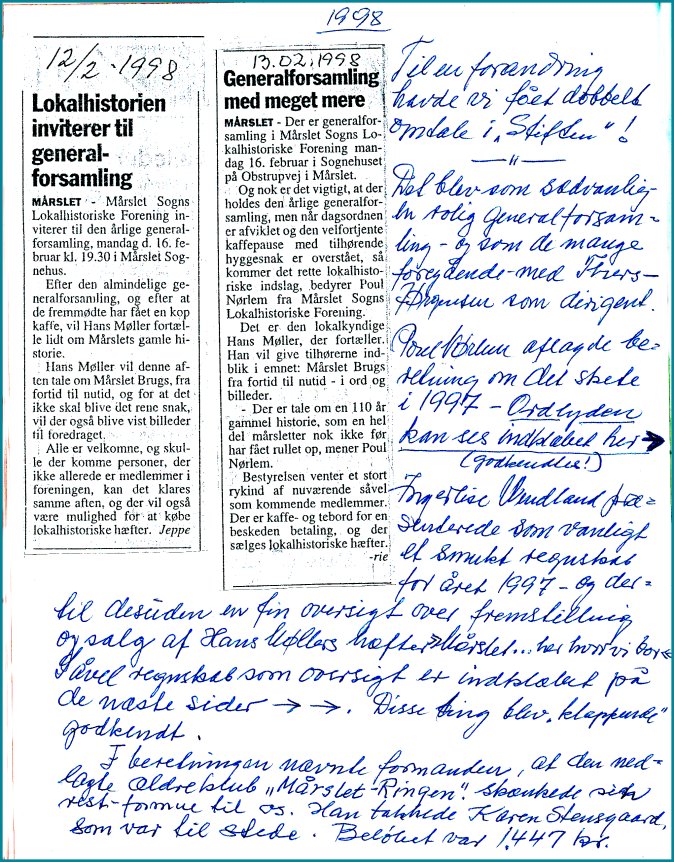 1998
12/2 - 1998
Lokalhistorien
inviterer til
general-
forsamling
MÅRSLET - Mårslet Sogns
Lokalhistoriske Forening in-
viterer til den årlige general-
forsamling, mandag d. 16. fe-
bruar kl. 19.30 i Mårslet Sog-
nehus.
Efter den almindelige ge-
neralforsamling, og efter at
de fremmødte har fået en kop
kaffe, vil Hans Møller fortæl-
le lidt om Mårslets gamle hi-
storie.
Hans Møller vil denne af-
ten tale om Mårslet Brugs, fra
fortid til nutid, og for at det
ikke skal blive det rene snak,
vil der også blive vist billeder
til foredraget.
Alle er velkomne, og skul-
le der komme personer, der
ikke allerede er medlemmer i
foreningen, kan det klares
samme aften, og der vil også
være mulighed for at købe
lokalhistoriske hæfter. Jeppe
13.02.1998
Generalforsamling
med meget mere
MÅRSLET - Der er generalfor-
samling i Mårslet Sogns Lo-
kalhistoriske Forening man-
dag 16. februar i Sognehuset
på Obstrupvej i Mårslet.
Og nok er det vigtigt, at der
holdes den årlige generalfor-
samling, men når dagsordnen
er afviklet og den velfortjente
kaffepause med tilhørende
hyggesnak er overstået, så
kommer det rette lokalhisto-
riske indslag, bedyrer Poul
Nørlem fra Mårslet Sogns
Lokalhistoriske Forening.
Det er den lokalkyndige
Hans Møller, der fortæller.
Han vil give tilhørerne ind-
blik i emnet: Mårslet Brugs
fra fortid til nutid - i ord og
billeder.
- Der er tale om en 110 år
gammel historie, som en hel
del mårsletter nok ikke før
har fået rullet op, mener Poul
Nørlem.
Bestyrelsen venter et stort
rykind af nuværende såvel
som kommende medlemmer.
Der er kaffe- og tebord for en
beskeden betaling, og der
sælges lokalhistoriske hæfter.
-rie
Til en forandring
havde vi fået dobbelt
omtale i „Stiften"!
— " —
Det blev som sædvanlig
en rolig generalforsam-
ling - og som de mange
foregående - med Thers-
Jørgensen som dirigent.
Poul Nørlem aflagde be-
retning om det skete
i 1997 - Ordlyden
kan ses indklæbet her →
(godkendtes!)
Ingerlise Wendland præ-
senterede som vanligt
et smukt regnskab
for året 1997 - og der-
til desuden en fin oversigt over fremstilling
og salg af Hans Møllers hæfter »Mårslet... her hvor vi bor«
Såvel regnskab som oversigt er indklæbet på
de næste sider → →. Disse ting blev „klappende"
godkendt.
I beretningen nævnte formanden, at den ned-
lagte ældreklub „Mårslet-Ringen" skænkede sin
rest-formue til os. Han takkede Karen Stensgaard,
som var til stede. Beløbet var 1.447 kr.